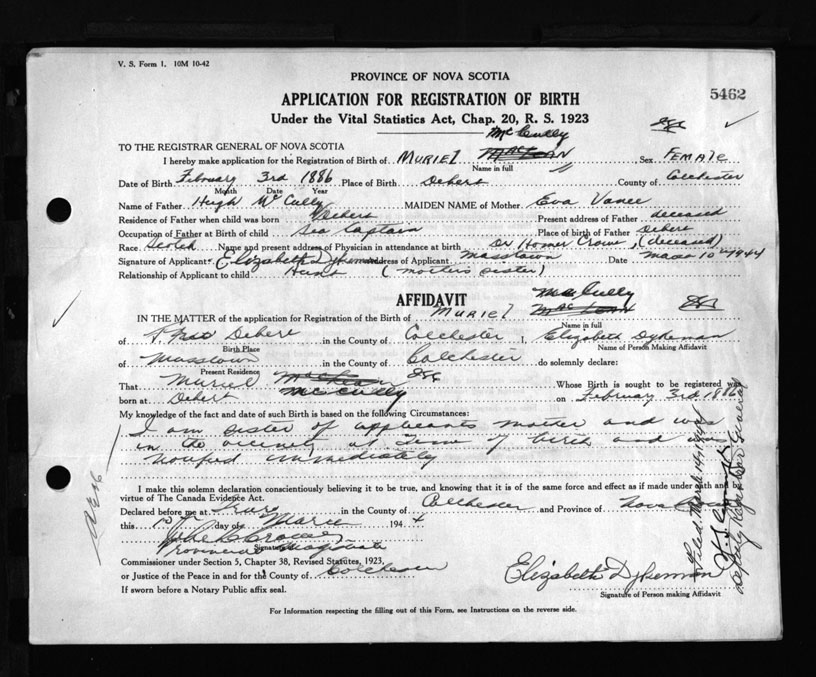 V. S. Form 1. 10M 10-42
PROVINCE OF NOVA SCOTIA
5462
APPLICATION FOR REGISTRATION OF BIRTH
Under the Vital Statistics Act, Chap. 20, R. S. 1923
McCully
TO THE REGISTRAR GENERAL OF NOVA SCOTIA
I hereby make application for the Registration of Birth of MURIEL Sex FEMALE
Name in full
Date of Birth February 3rd 1886 Place of Birth Debert County of Colchester
Month Date Year
Name of Father Hugh McCully MAIDEN NAME of Mother Eva Vance
Residence of Father when child was born Debert Present address of Father deceased
Occupation of Father at Birth of child Sea Captain Place of birth of Father Debert
Race Scotch Name and present address of Physician in attendance at birth Dr Homer Crowe, (deceased)
Signature of Applicant Elizabeth Dykeman Address of Applicant Masstown Date 10th 1944
Relationship of Applicant to child (mother's sister)
AFFIDAVIT
McCully
IN THE MATTER of the application for Registration of the Birth of MURIEL
Name in full
of Debert in the County of Colchester I, Elizabeth Dykeman
Birth Place Name of Person Making Affidavit
of Masstown in the County of Colchester do solemnly declare:
Present Residence
That Muriel Whose Birth is sought to be registered was
born at Debert McCully on February 3rd 1886
My knowledge of the fact and date of such Birth is based on the following Circumstances:
I am sister of applicants mother and was
in the vicinity at time of birth and was
notified immediately
I make this solemn declaration conscientiously believing it to be true, and knowing that it is of the same force and effect as if made under oath and by
virtue of The Canada Evidence Act.
Declared before me at Truro in the County of Colchester and Province of Nova Scotia
this 10th day of March 1944
Signature
Provincial Magistrate
Commissioner under Section 5, Chapter 38, Revised Statutes, 1923,
or Justice of the Peace in and for the County of Colchester
Elizabeth Dykeman
If sworn before a Notary Public affix seal.
Signature of Person making Affidavit
For Information respecting the filling out of this Form, see Instructions on the reverse side.
Filed March 14 1944
Deputy Registrar General